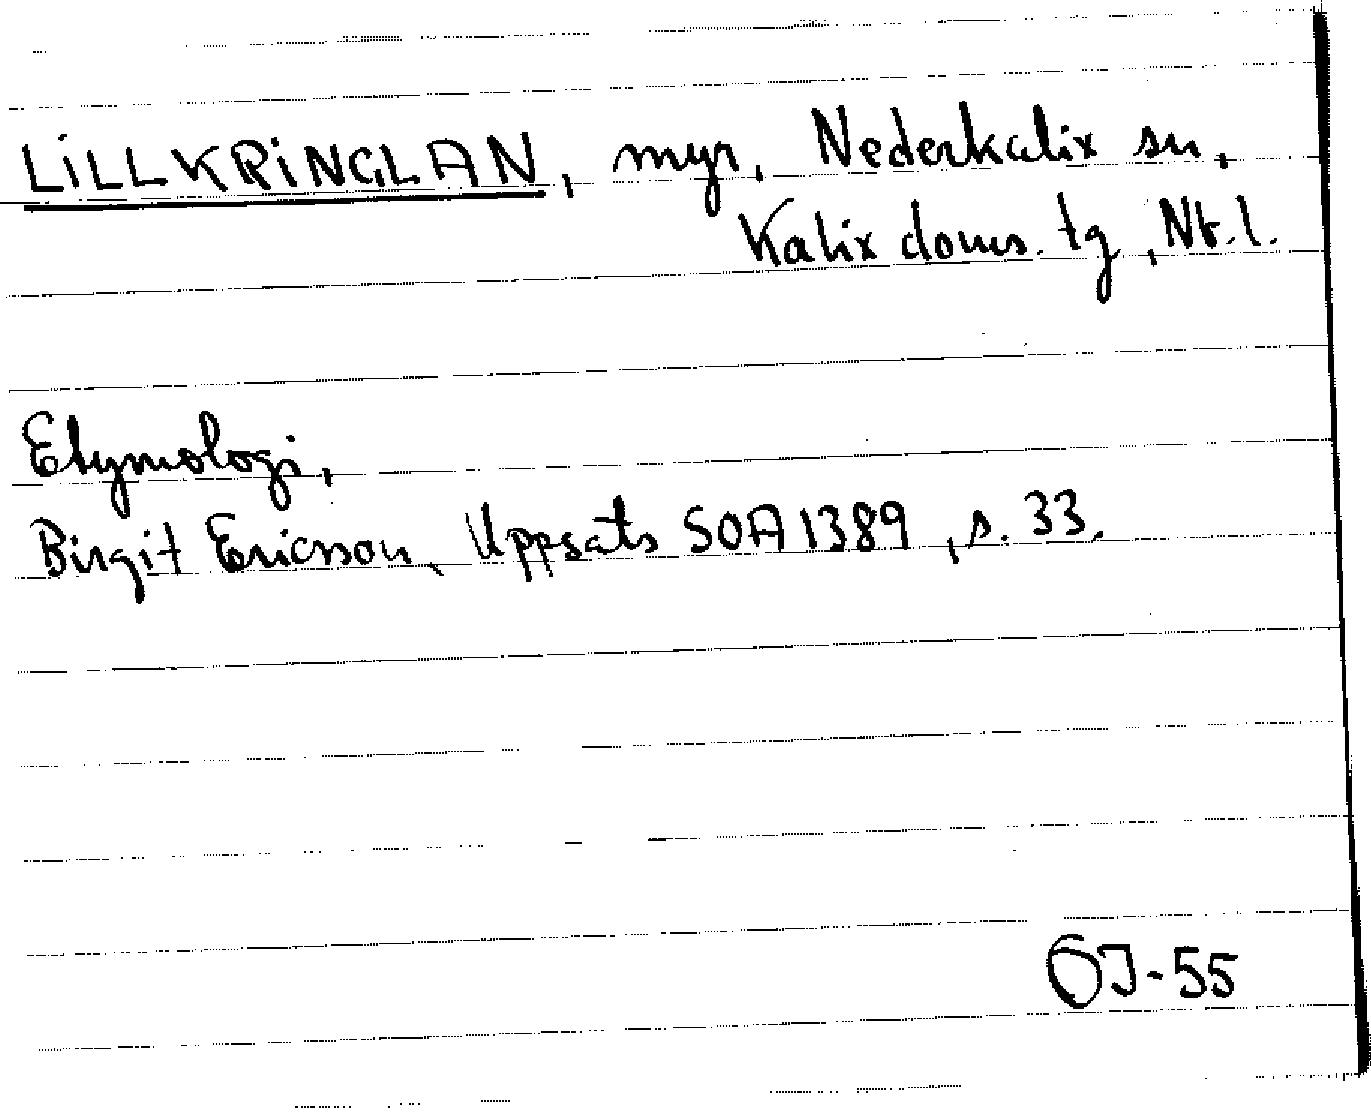 LILLKRINGLAN, myr, Nederkalix sn,
Kalix doms. tg, Nb. l.
Etymologi,
Birgit Ericson, Uppsats SOA 1389, s. 33.
GJ-55